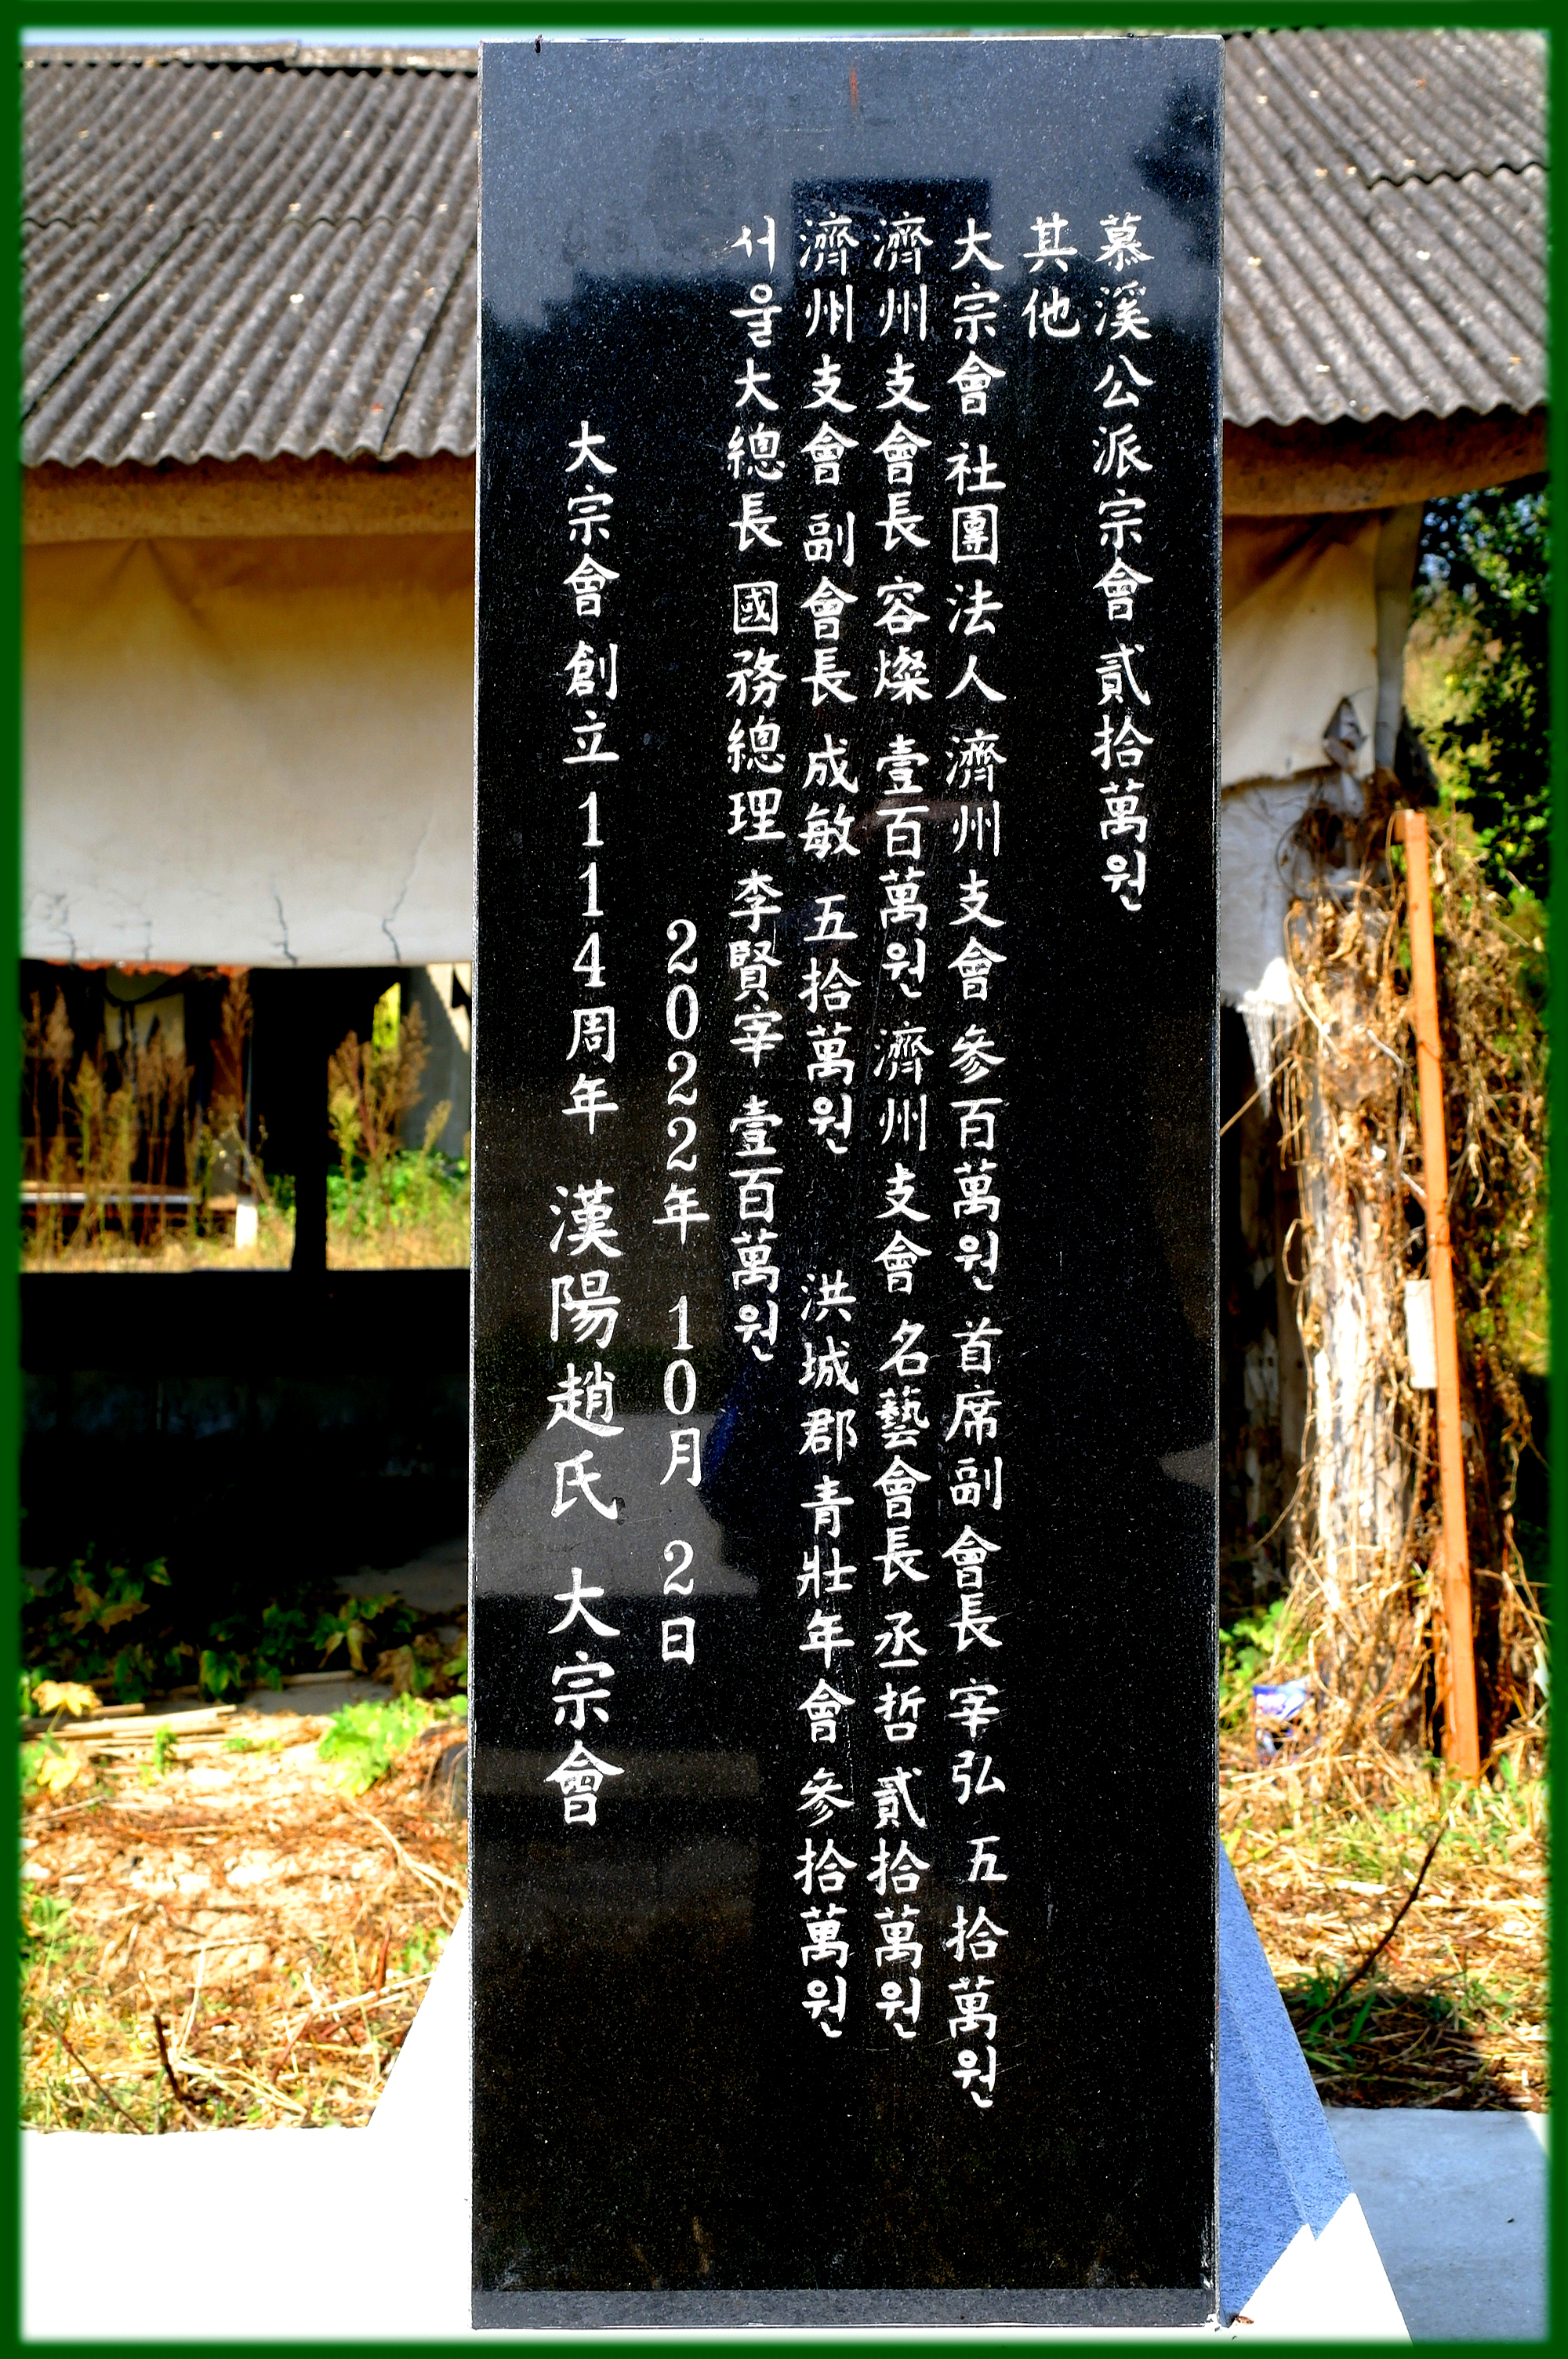 慕溪公派宗會 貳拾萬원
其他
大宗會 社團法人 濟州支會 參百萬원 首席副會長 宰弘 五拾萬원
濟州支會長 容燦 壹百萬원 濟州支會 名藝會長 丞哲 貳拾萬원
濟州支會 副會長 成敏 五拾萬원 洪城郡青壯年會 參拾萬원
서울大總長 國務總理 李賢宰 壹百萬원
2022年 10月 2日
大宗會 創立 114周年 漢陽趙氏 大宗會